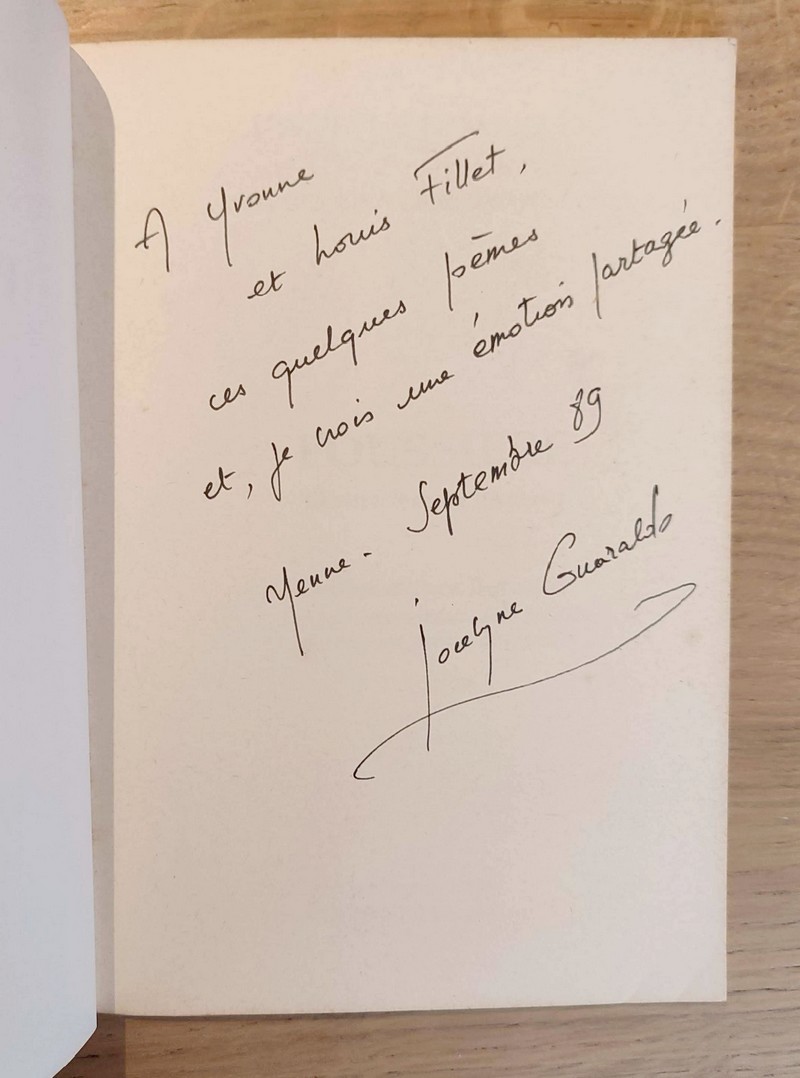 A Yvonne
et Louis Fillet,
ces quelques pēmes
et, je crois une émotion partagée.
Yenne - Septembre 89
Jocelyne Guaraldo